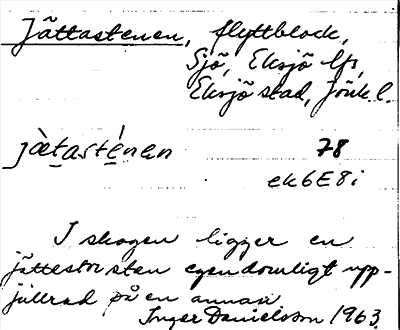 Jättastenen, flyttblock,
Sjö, Eksjö lfs,
Eksjö stad, Jönk.l.
jæ̀tasténen 78
ek6E8i
I skogen ligger en
jättestor sten egendomligt upp-
jullrad på en annan
Inger Danielsson 1963